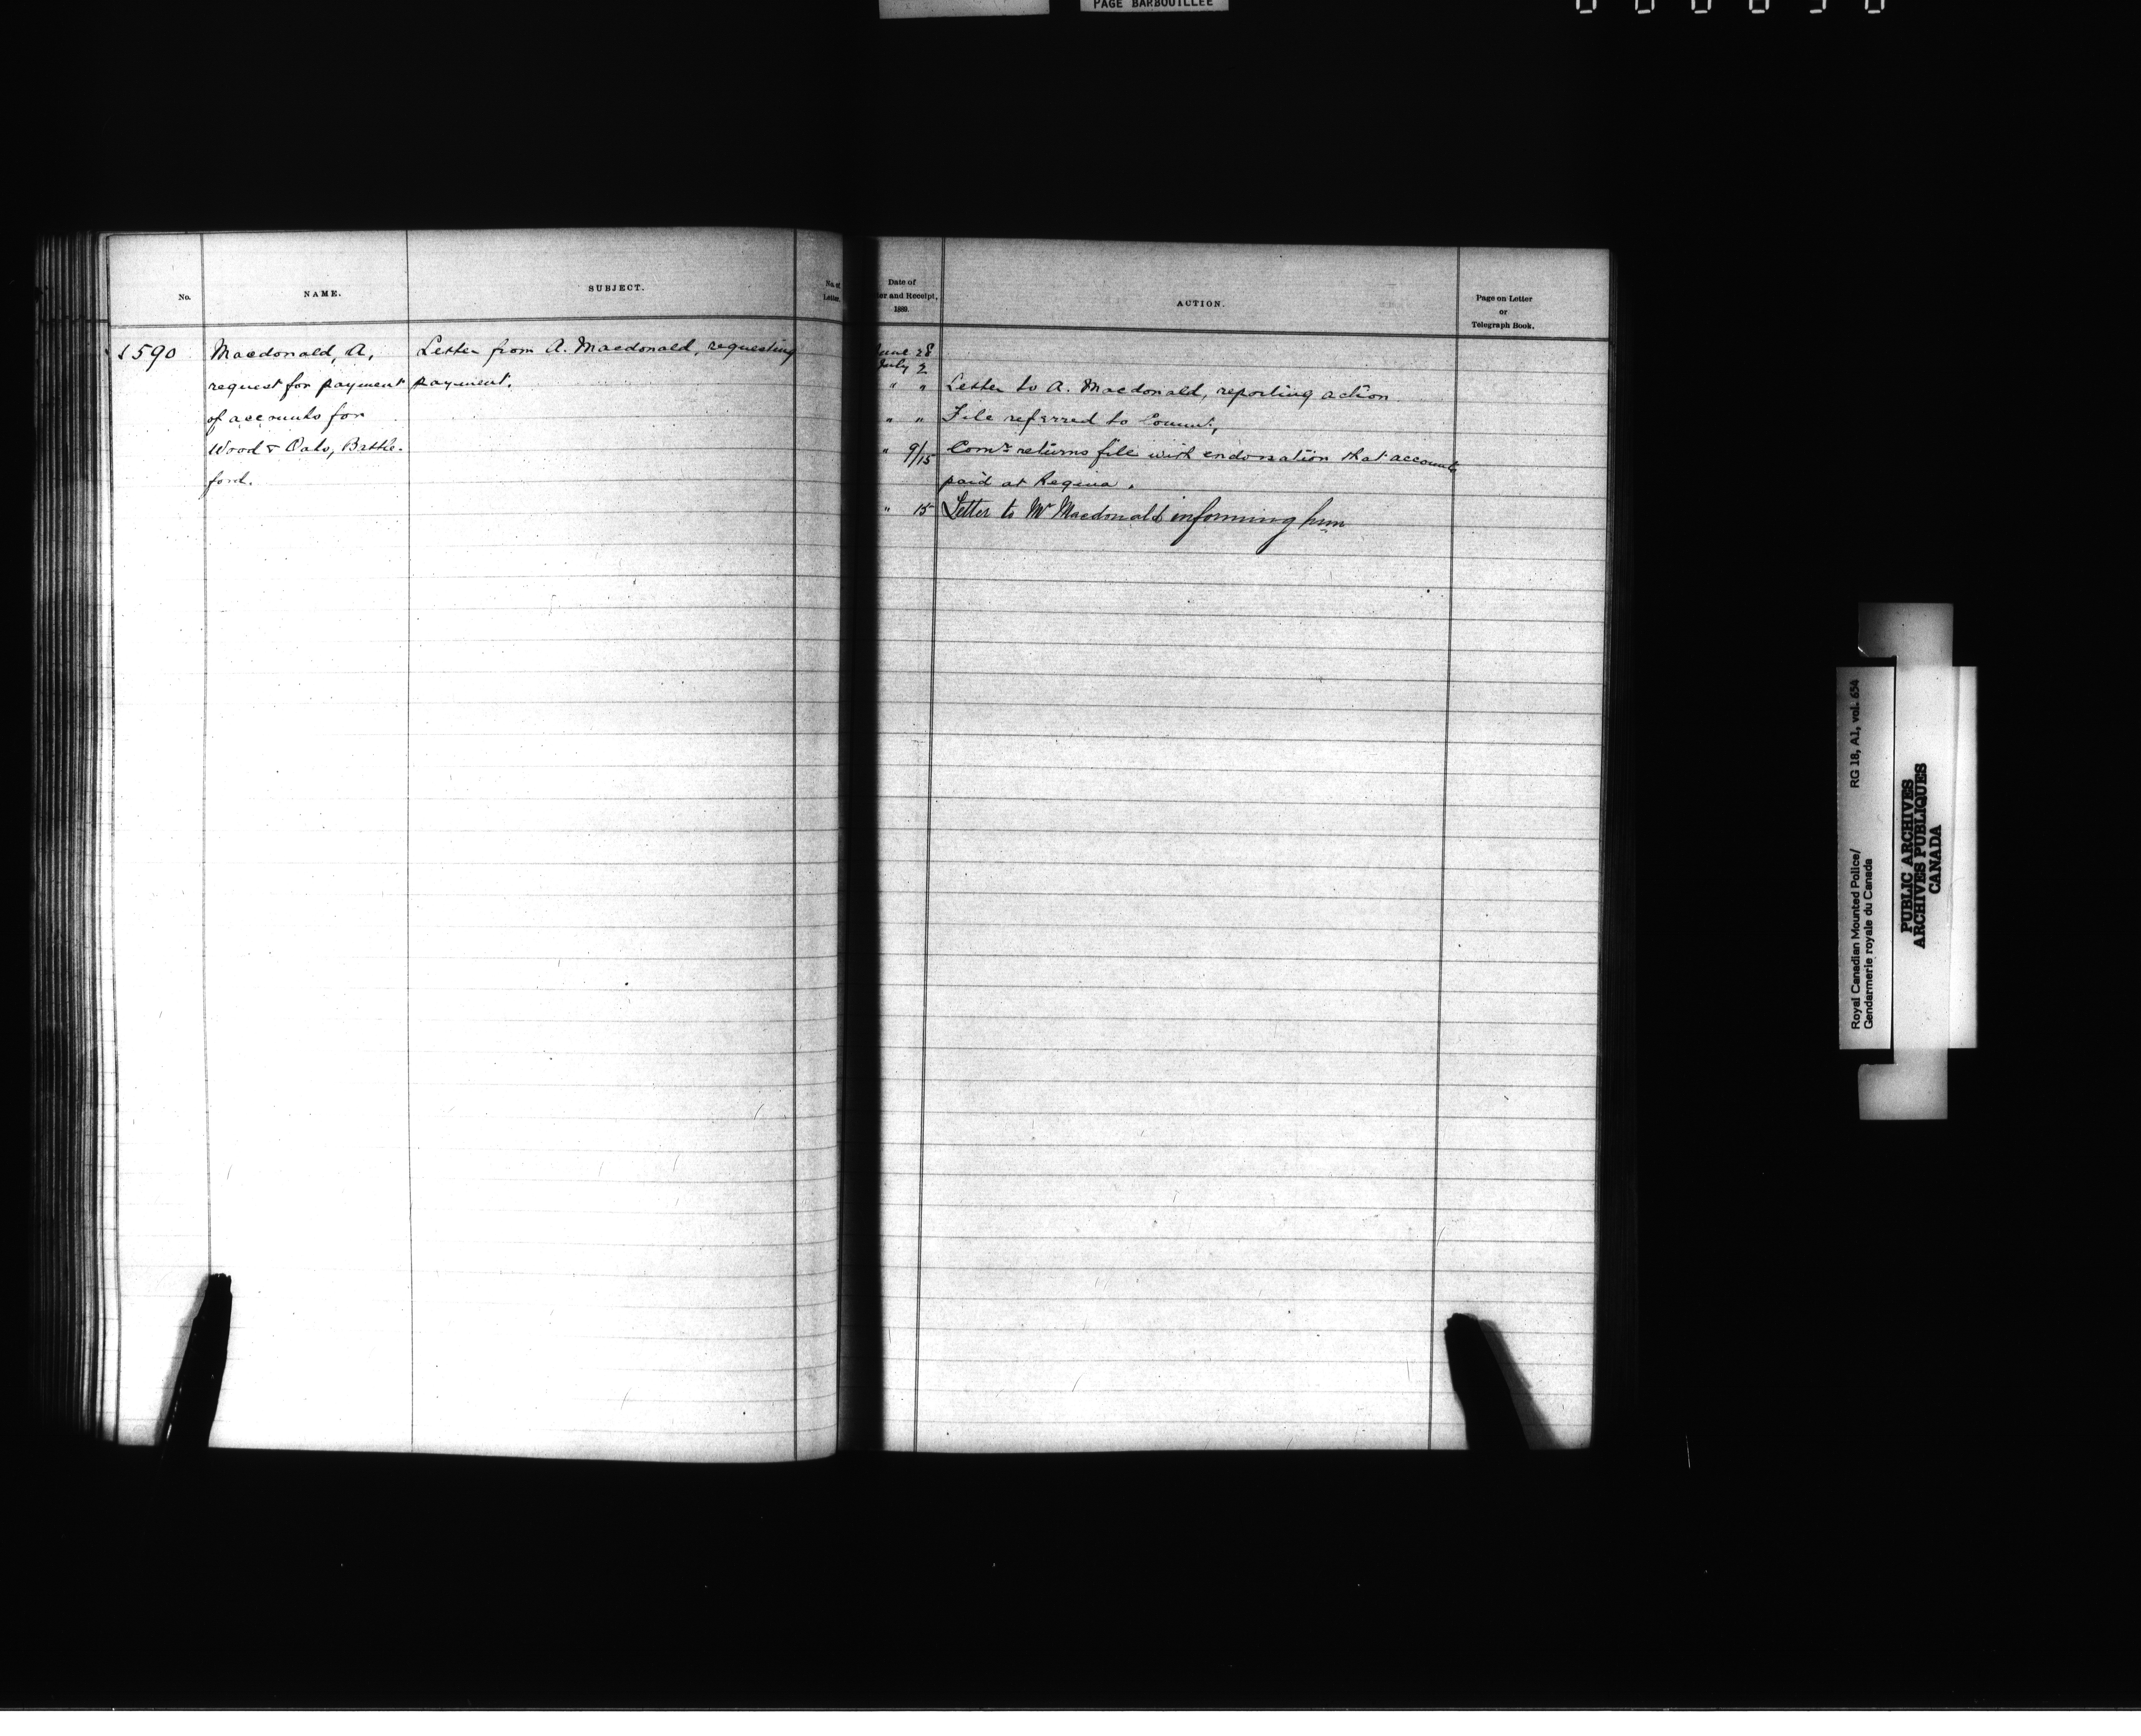 PAGE BARBOUILLEE
No.
NAME.
SUBJECT.
No. of
Letter.
Date of
er and Receipt,
1889.
ACTION.
Page on Letter
or
Telegraph Book.
590
Macdonald, A,
request for payment
of accounts for
Wood & Oats, Battle-
ford.
Letter from A. Macdonald, requesting
payment.
June 28
July 2
" " Letter to A. Macdonald, reporting action
" " File referred to
" 9/15 Comr. returns file with endorsation that accounts
paid at Regina.
" 15 Letter to Mr Macdonald informing him
Royal Canadian Mounted Police/
Gendarmerie royale du Canada
RG 18, A1, vol. 654
PUBLIC ARCHIVES
ARCHIVES PUBLIQUES
CANADA